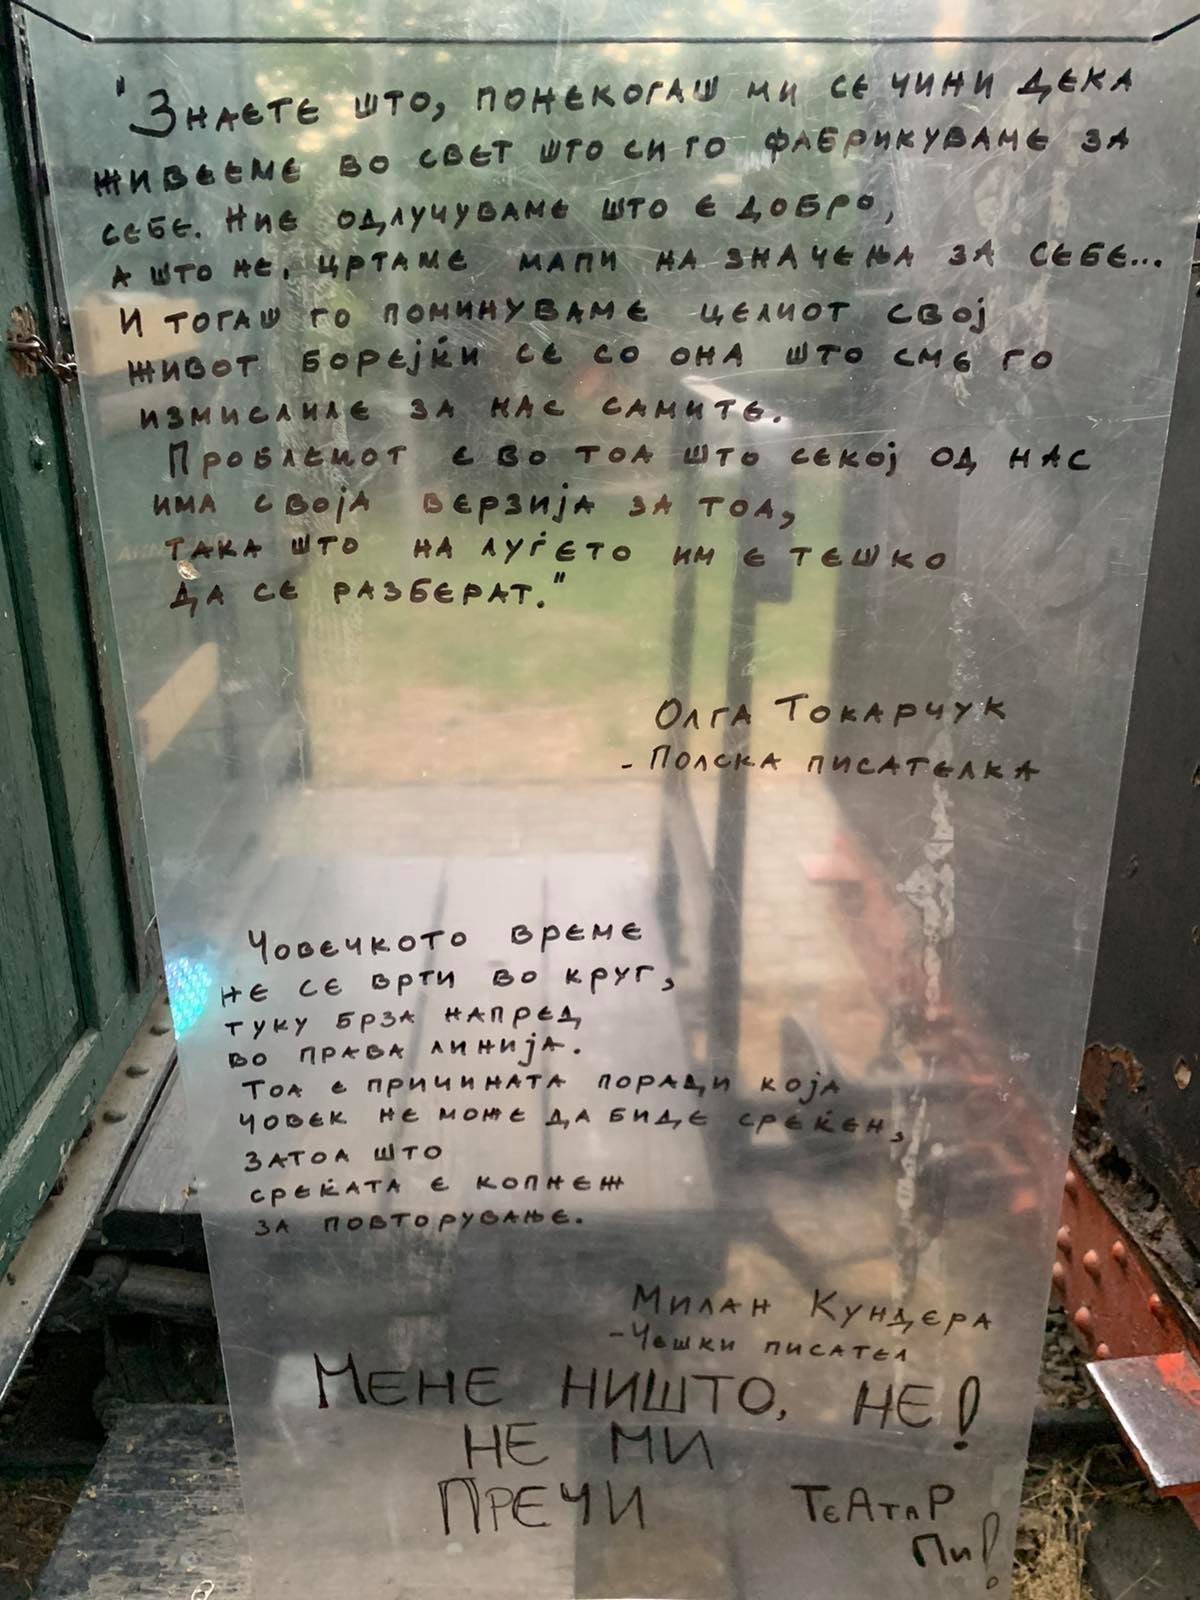 "Знаете што, понекогаш ми се чини дека
живееме во свет што си го фабрикуваме за
себе. Ние одлучуваме што е добро,
а што не, цртаме мапи на значења за себе...
И тогаш го поминуваме целиот свој
живот борејќи се со она што сме го
измислиле за нас самите.
Проблемот е во тоа што секој од нас
има своја верзија за тоа,
така што на луѓето им е тешко
да се разберат."
Олга Токарчук
- Полска писателка
Човечкото време
не се врти во круг,
туку брза напред
во права линија.
Тоа е причината поради која
човек не може да биде среќен,
затоа што
среќата е копнеж
за повторување.
Милан Кундера
- Чешки писател
Мене ништо, не!
не ми
пречи
Театар
Пи!